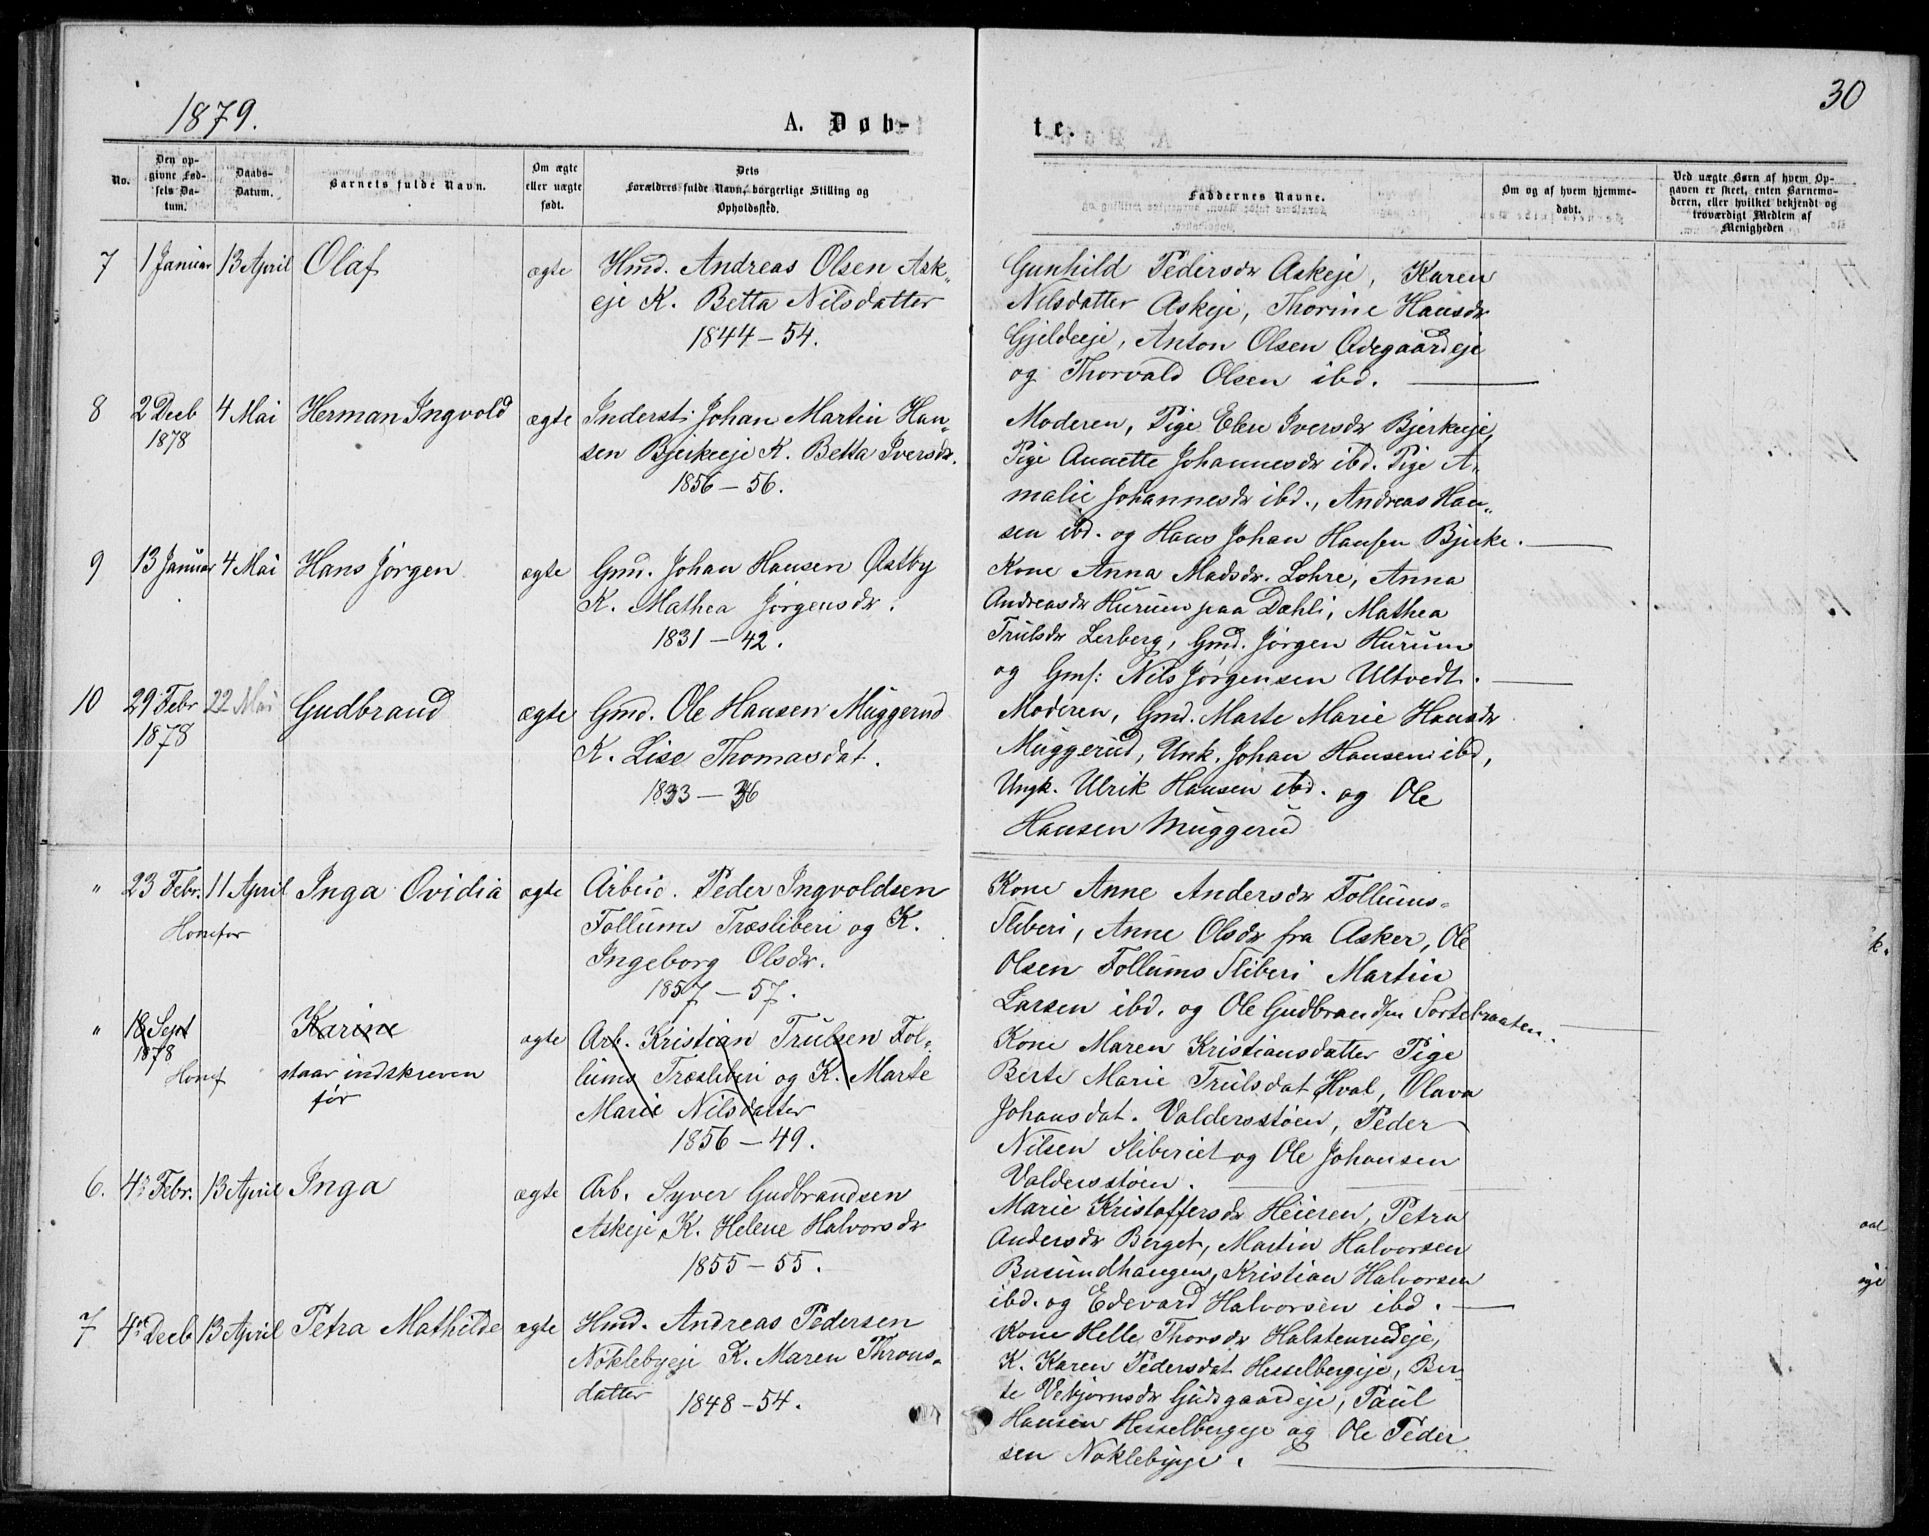 30
1879.
A. Døb-
te.
No.
Den op-
givne Fød-
sels Da-
tum.
Daabs-
Datum.
Barnets fulde Navn.
Om ægte
eller uægte
født.
Dets
Forældres fulde Navn, borgerlige Stilling og
Opholdssted.
Faddernes Navne.
Om og af hvem hjemme-
døbt.
Ved uægte Børn af hvem Op-
gaven er skeet, enten Barnemo-
deren, eller hvilket bekjendt og
troværdigt Medlem af
Menigheden
7 1 Januar 13 April Olaf ægte Hmd. Andreas Olsen Ask-
eje K. Betta Nilsdatter
1844-54.
Gunhild Pedersdr Askeje, Karen
Nilsdatter Askeje, Thorine Hansdr
Gjeldeeje, Anton Olsen Ødegaardeje
og Thorvald Olsen ibd.
8 2 Decb 4 Mai Herman Ingvold ægte Inderst: Johan Martin Han-
1878
sen Bjerkeeje K. Betta Iversdr.
1856-56.
Moderen, Pige Elen Iversdr Bjerkeeje,
Pige Annette Johannesdr ibd. Pige A-
malie Johannesdr ibd., Andreas Han-
sen ibd. og Hans Johan Hansen Bjerke.
9 13 Januar 4 Mai Hans Jørgen ægte Gmd. Johan Hansen Østby
K. Mathea Jørgensdr.
1831-42.
Kone Anna Madsdr. Lohre, Anna
Andreasdr Hurum paa Dæhli, Mathea
Trulsdr Lerberg, Gmd. Jørgen Hurum
og Gms: Nils Jørgensen Ultvedt.
10 29 Febr 22 Mai Gudbrand ægte Gmd. Ole Hansen Muggerud
1878
K. Lise Thomasdat.
1833-36
Moderen, Gmd. Marte Marie Hansdr
Muggerud, Unk. Johan Hansen ibd,
Ungk. Ulrik Hansen ibd. og Ole
Hansen Muggerud
" 23 Febr. 11 April Inga Ovidia ægte Arbeid. Peder Ingvoldsen
Honefos
Follums Træsliberi og K.
Ingeborg Olsdr.
1857-57.
Kone Anne Andersdr Follums-
Sliberi, Anne Olsdr fra Asker, Ole
Olsen Follums Sliberi Martin
Larsen ibd. og Ole Gudbrandsen Sortebraaten.
" 18 Sept Karine ægte Arb. Kristian Trulsen Fol-
1878
Honef staar indskreven
før
lums Træsliberi og K. Marte
Marie Nilsdatter
1856-49.
Kone Maren Kristiansdatter Pige
Berte Marie Trulsdat Hval, Olava
Johansdat. Valdersstøen, Peder
Nilsen Sliberiet og Ole Johansen
Valdersstøen.
6. 4de Febr. 13 April Inga ægte Arb. Syver Gudbrandsen
Askeje, K. Helene Halvorsdr
1855-55.
Marie Kristoffersdr Heieren, Petra
Andersdr Berget, Martin Halvorsen
Busundhaugen, Kristian Halvorsen
ibd. og Edevard Halvorsen ibd.
7 4de Decb 13 April Petra Mathilde ægte Hmd. Andreas Pedersen
Nøklebyeje K. Maren Throns-
datter 1848-54.
Kone Helle Thorsdr Halstenrudeje,
K. Karen Pedersdat Hesselbergeje, Ber-
te Vebjørnsdr Gudsgaardeje, Paul
Hansen Hesselbergeje og Ole Peder
sen Nøklebyeje.